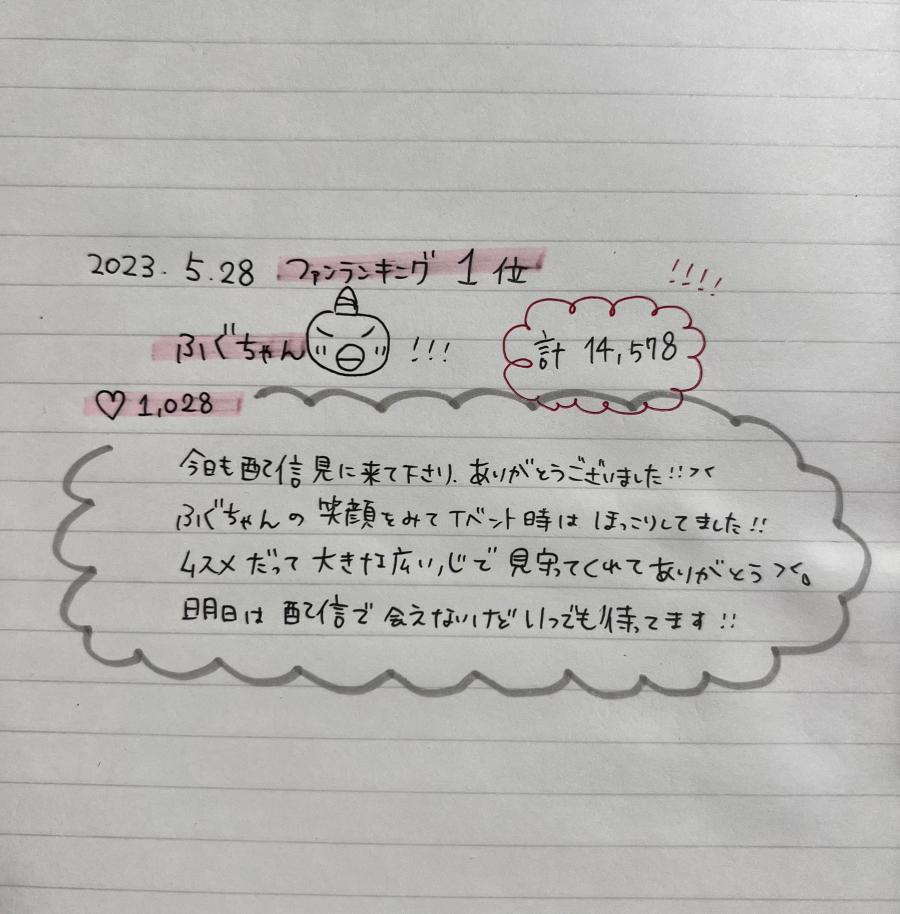 2023. 5.28 ファンランキング 1位 !!!!
ふぐちゃん !!! 計 14,578
♡ 1,028
今日も配信見に来て下さり、ありがとうございました!!
ふぐちゃんの 笑顔をみて イベント時は ほっこりしてました!!
ムスメだって 大きな広い心で 見守ってくれてありがとう
明日は 配信で 会えないけど いつでも待ってます!!